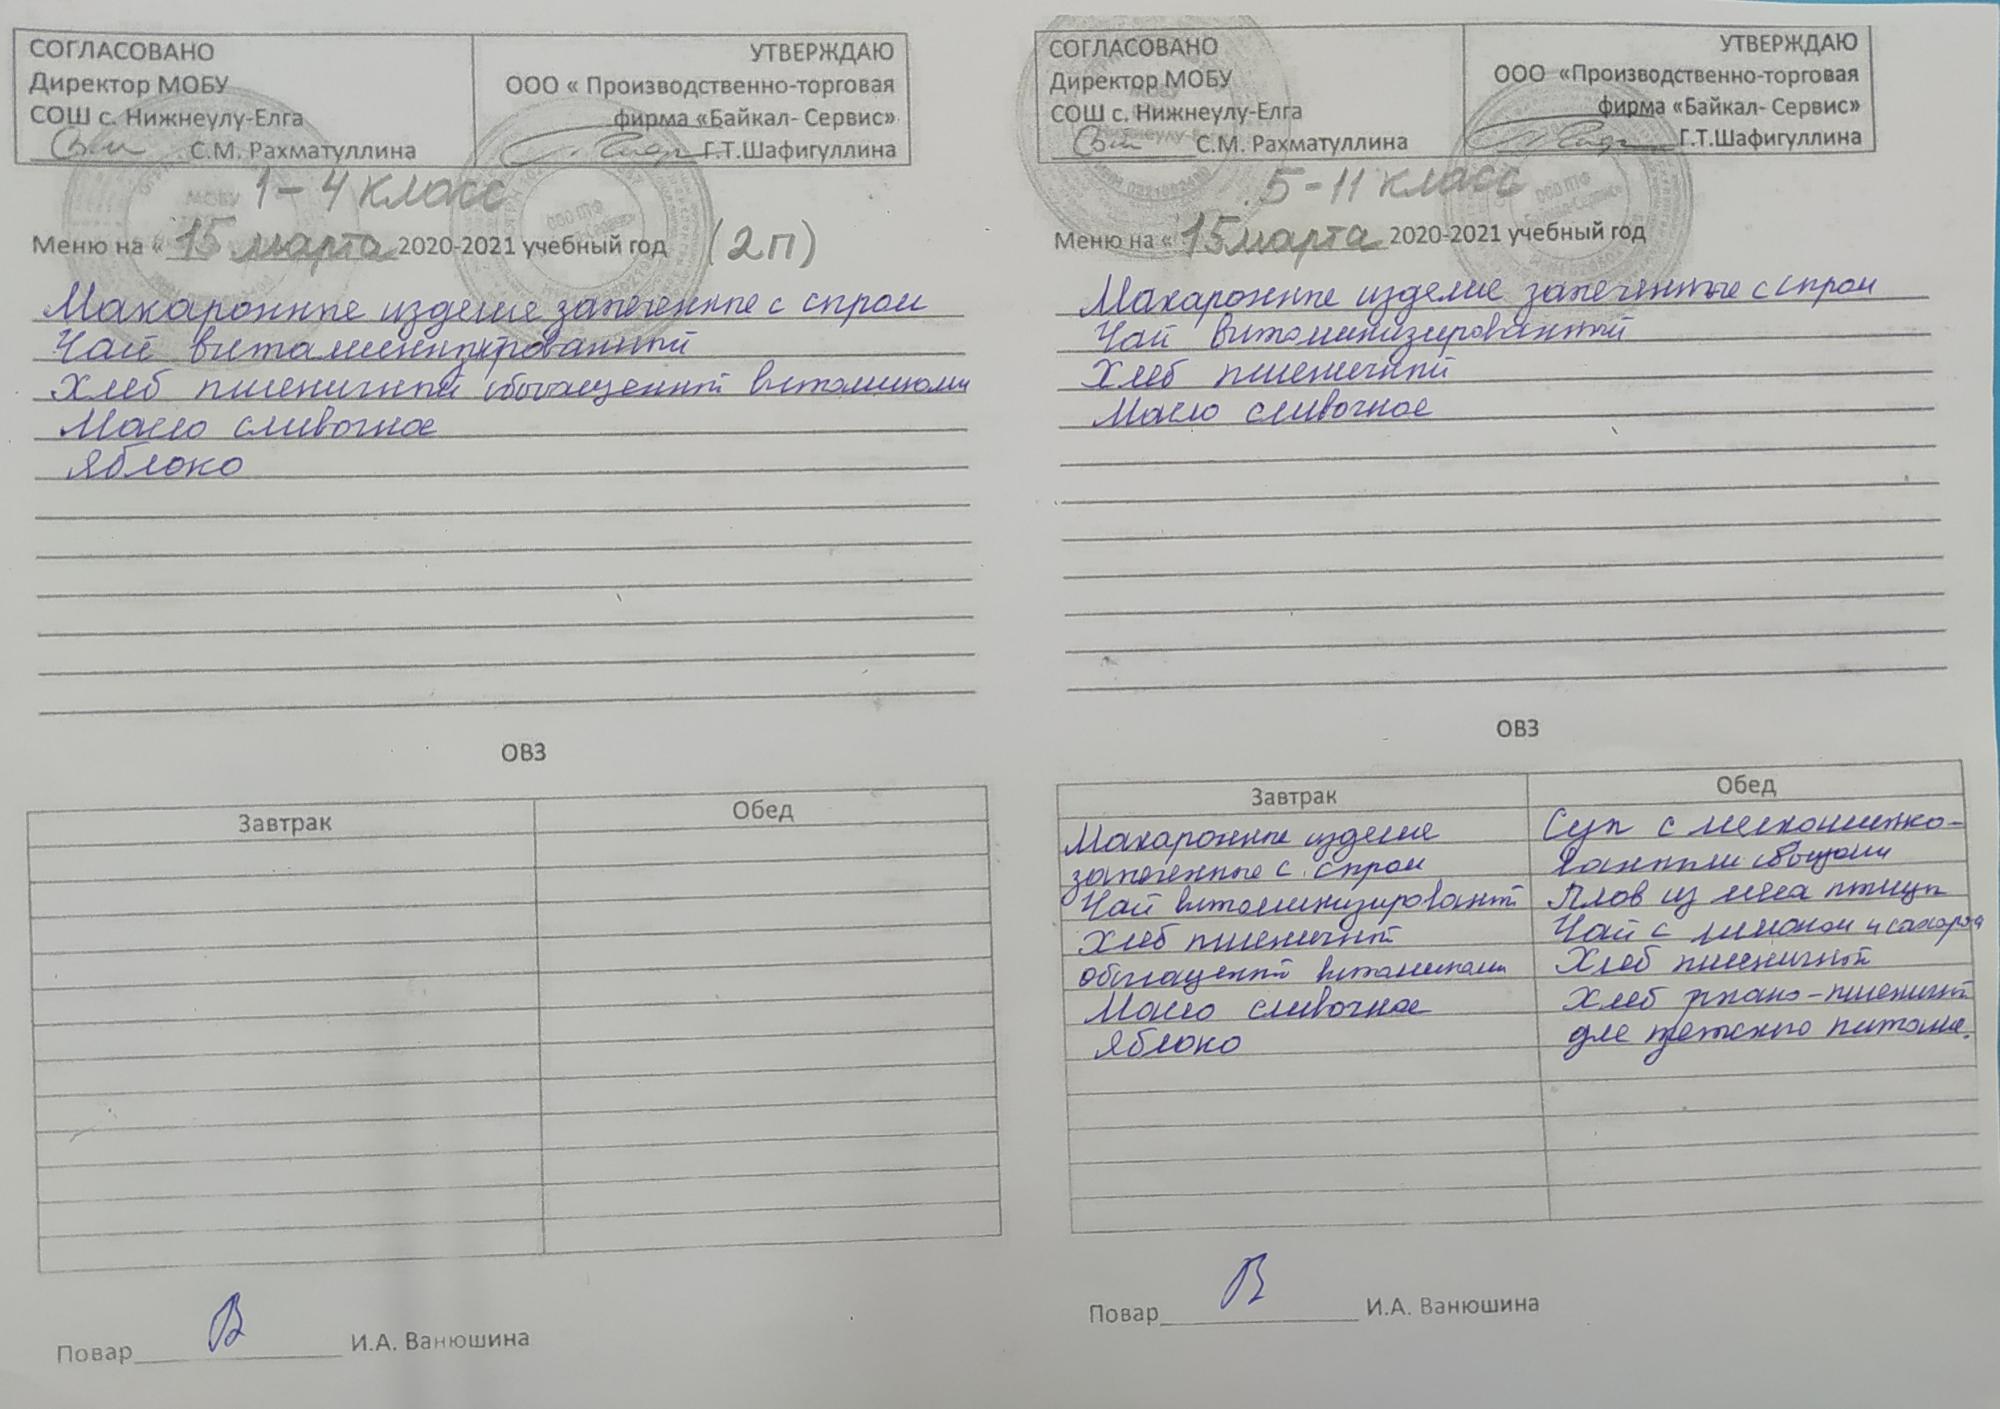 СОГЛАСОВАНО
Директор МОБУ
СОШ с. Нижнеулу-Елга
С.М. Рахматуллина
УТВЕРЖДАЮ
ООО « Производственно-торговая
фирма «Байкал- Сервис»
Г.Т.Шафигуллина
1-4 класс
Меню на « 15 марта 2020-2021 учебный год (2п)
Макаронные изделие запеченные с сыром
Чай витаминизированный
Хлеб пшеничный обогащенный витаминами
Масло сливочное
Яблоко
ОВЗ
Завтрак Обед
Повар И.А. Ванюшина
СОГЛАСОВАНО
Директор МОБУ
СОШ с. Нижнеулу-Елга
С.М. Рахматуллина
УТВЕРЖДАЮ
ООО «Производственно-торговая
фирма «Байкал- Сервис»
Г.Т.Шафигуллина
5-11 класс
Меню на « 15 марта 2020-2021 учебный год
Макаронные изделие запеченные с сыром
Чай витаминизированный
Хлеб пшеничный
Масло сливочное
ОВЗ
Завтрак
Макаронные изделие
запеченные с сыром
Чай витаминизированный
Хлеб пшеничный
обогащенный витаминами
Масло сливочное
Яблоко
Обед
Суп с мелкошинко-
ванными овощами
Плов из мяса птицы
Чай с лимоном и сахаром
Хлеб пшеничный
Хлеб ржано-пшеничный
для детского питания.
Повар И.А. Ванюшина